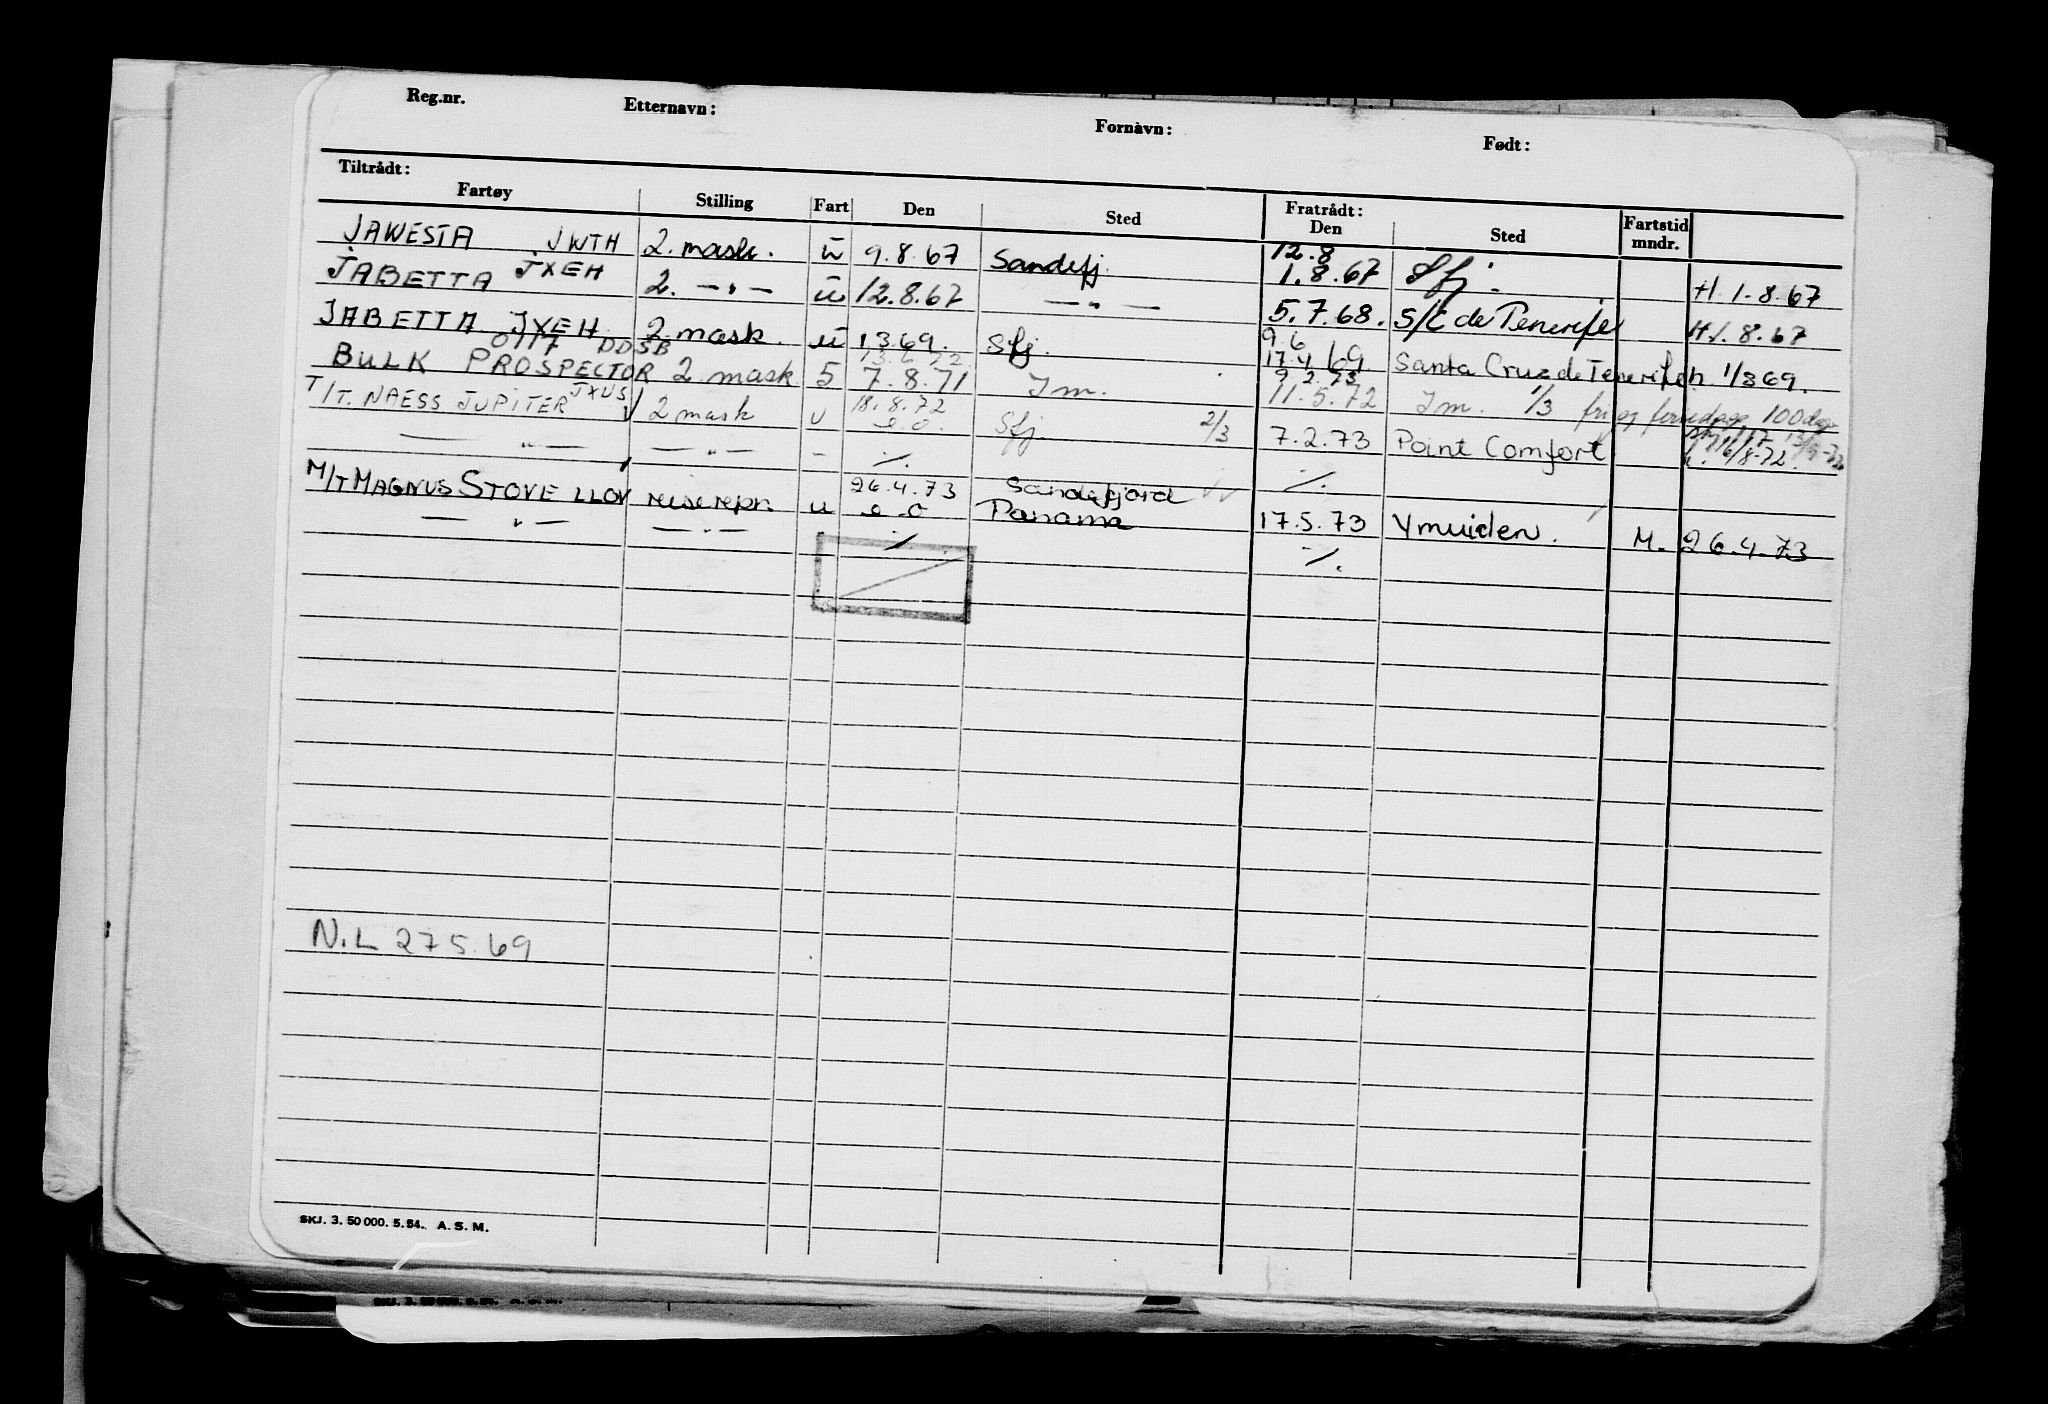 Reg.nr. Etternavn: Fornavn: Født:
Tiltrådt: Fratrådt:
Fartøy Stilling Fart Den Sted Den Sted Fartstid mndr.
JAWESTA JWTH 2. mask. u 9.8.67 Sandefj. 12.8 1.8.67 Sfj. H. 1.8.67
JABETTA JXEH 2. — " — u 12.8.67 — " — 5.7.68. S/C de Tenerife H 1.8.67
JABETTA JXEH 2. mask. u 1 3 69. Sfj. 9.6 17.4 69 Santa Cruz de Tenerife h. 1/3 69.
0117 DDSB 13.6.72 9.2.73
BULK PROSPECTOR 2 mask 5 7.8.71 Im. 11.5.72 Im. 1/3 fri og 100 dage
T/T. NAESS JUPITER JXUS 2 mask u 18.8.72 e.o. Sfj. 2/3 7.2.73 Point Comfort h. 16/8-72.
— " — — " — - ·/. ·/.
M/T MAGNUS STOVE LLOV reiserepr. u 26.4.73 e.o Sandefjord Panama 17.5.73 Ymuiden. M. 26.4.73
— " — — " — ·/. ·/.
N.L 27 5.69
SKJ. 3. 50 000. 5. 54. A. S. M.
SKJ. 3. 50 000. 5. 54. A. S. M.